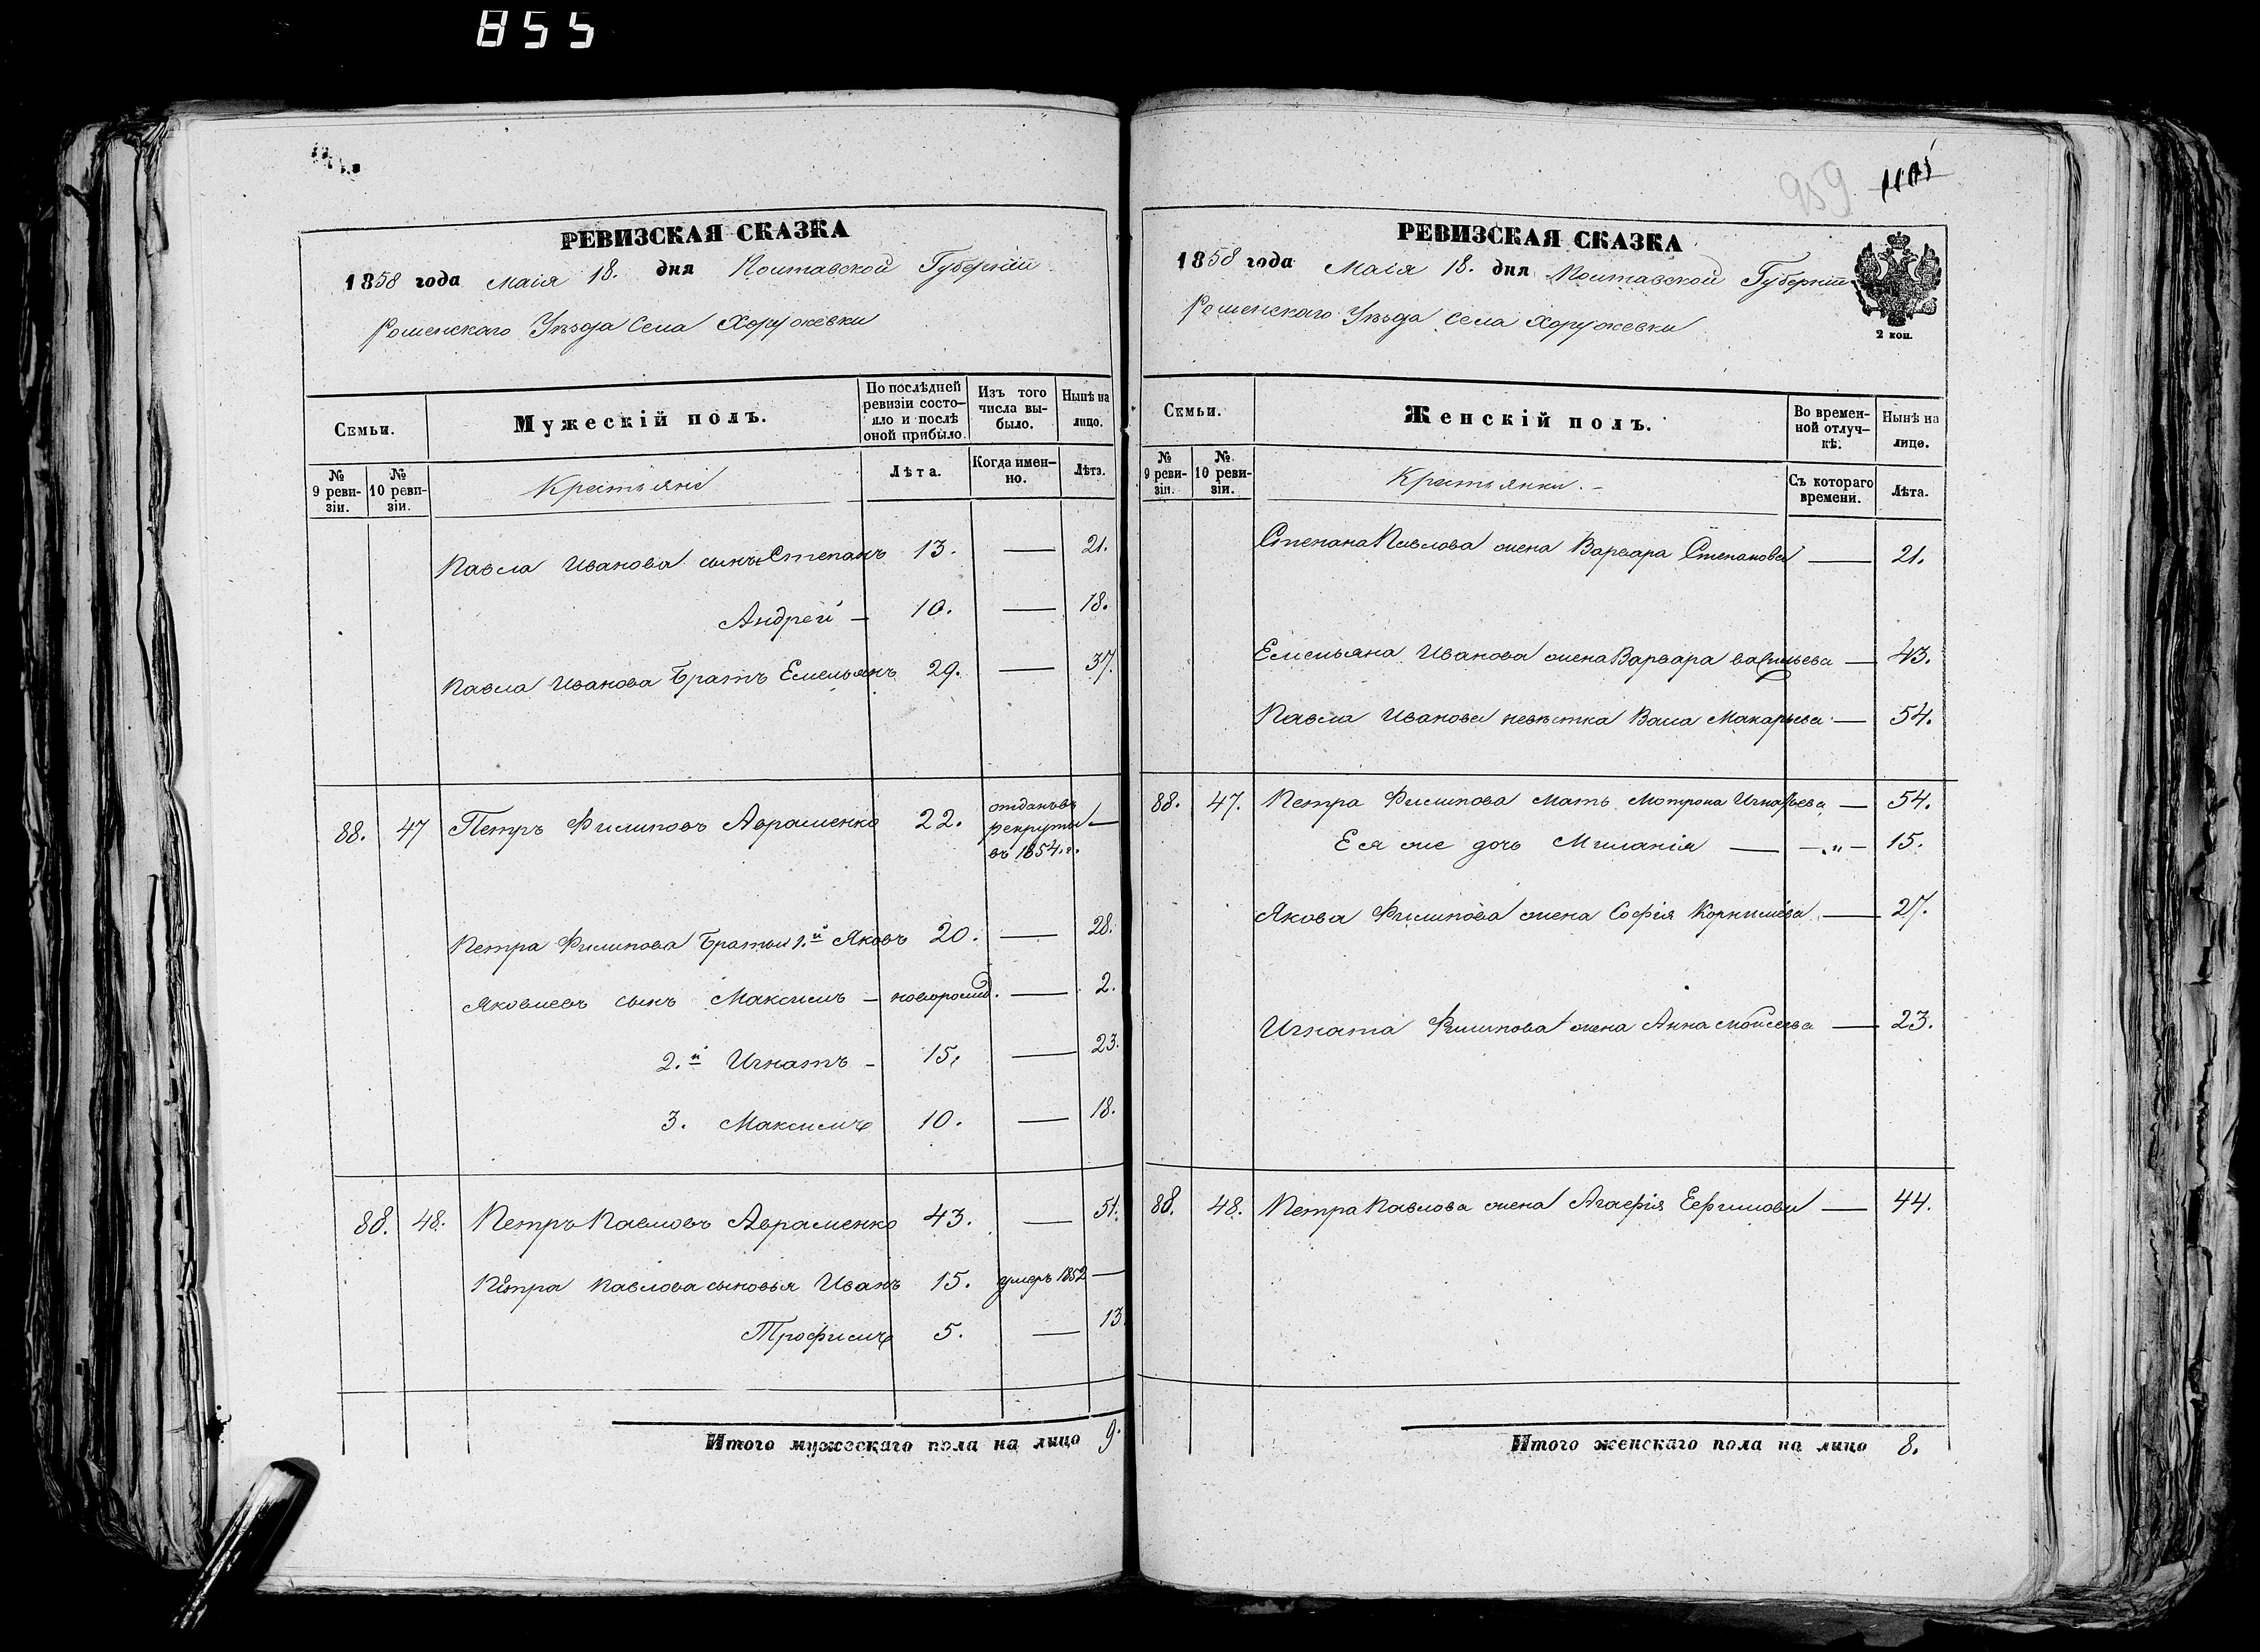 855
РЕВИЗСКАЯ СКАЗКА
1858 года Маія 18. дня Полтавской Губерніи
Роменскаго Уѣзда Села Хоружевки
Семьи.
Мужескій полъ.
По послѣдней ревизіи состояло и послѣ оной прибыло.
Изъ того числа выбыло.
Нынѣ на лицо.
№ 9 ревизіи.
№ 10 ревизіи.
Крестьяне
Лѣта.
Когда именно.
Лѣта.
Павла Иванова сынъ Степанъ 13. — 21.
Андрей — 10. — 18.
Павла Иванова Братъ Емельянъ 29. — 37.
88. 47 Петръ Филиповъ Авраменко 22. отданъ въ рекруты въ 1854.г. —
Петра Филипова Братья 1.й Яковъ 20. — 28.
Яковлевъ сынъ Максимъ — новорожд. — 2.
2.й Игнатъ — 15. — 23.
3. Максимъ 10. — 18.
88. 48. Петръ Павловъ Авраменко 43. — 51.
Петра Павлова сыновья Иванъ 15. умеръ 1852 —
Трофимъ 5. — 13.
Итого мужескаго пола на лицо 9.
959 1101
РЕВИЗСКАЯ СКАЗКА
1858 года Маія 18. дня Полтавской Губерніи
Роменскаго Уѣзда Села Хоружевки
2 коп.
Семьи.
Женскій полъ.
Во временной отлучкѣ.
Нынѣ на лицо.
№ 9 ревизіи.
№ 10 ревизіи.
Крестьянки. —
Съ котораго времени.
Лѣта.
Степана Павлова жена Варвара Степанова — 21.
Емельяна Иванова жена Варвара Васильева — 43.
Павла Иванова невѣстка Макарьева — 54.
88. 47. Петра Филипова мать Мотрона Игнатьева — 54.
Ея же дочь Миланія — — „ — 15.
Якова Филипова жена Софія Корнилиева — 27.
Игната Филипова жена Анна Моисеева — 23.
88. 48. Петра Павлова жена Агафія Ефимова — 44.
Итого женскаго пола на лицо 8.